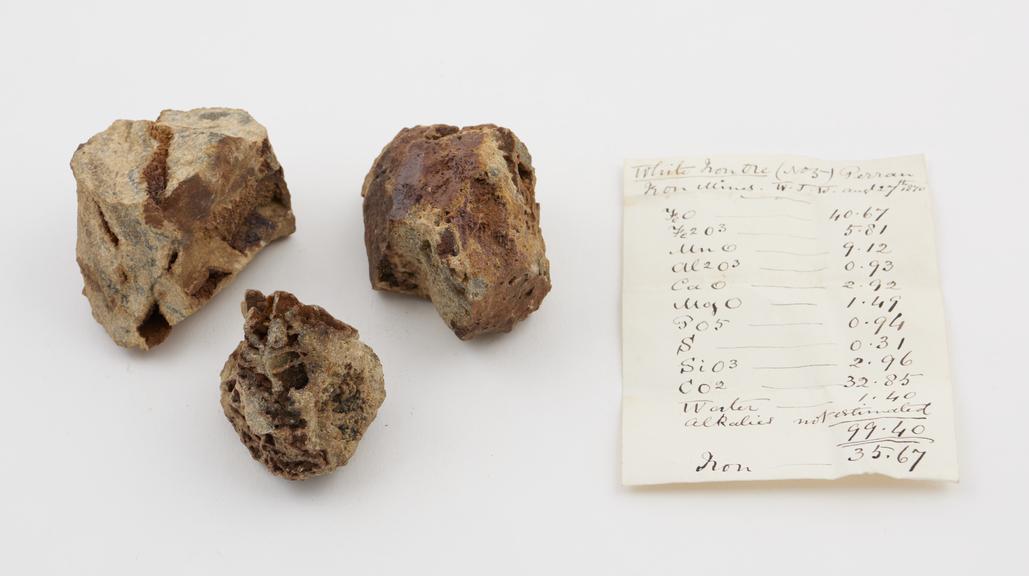 White Iron Ore (No 5) Perran
Iron Mines. W. T. W. augt 27th 1870
FeO — 40.67
Fe2O3 — 5.81
MnO — 9.12
Al2O3 — 0.93
CaO — 2.92
MgO — 1.49
PO5 — 0.94
S — 0.31
SiO3 — 2.96
CO2 — 32.85
Water — 1.40
alkalies not estimated
99.40
Iron — 35.67